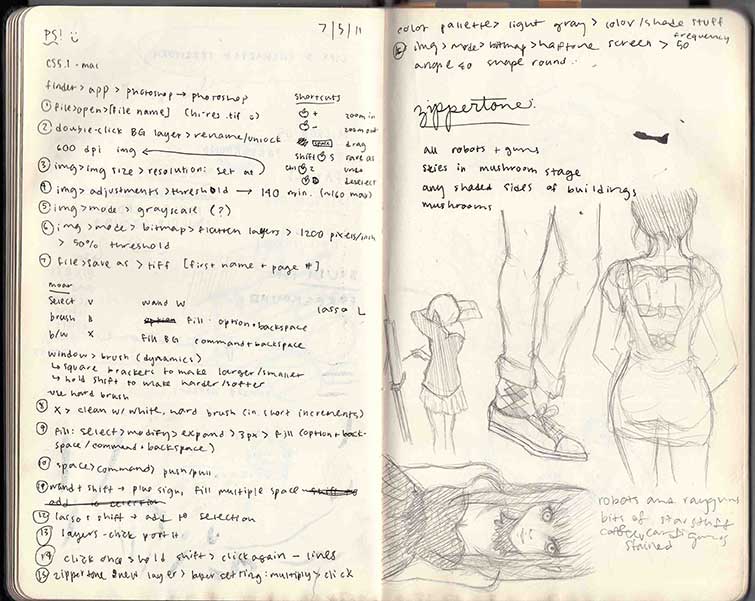 PS! 7/5/11
CS5.1 - mac
finder > app > photoshop → photoshop
① file > open > [file name] (hi-res .tif
② double-click BG layer > rename/unlock
600 dpi img
③ img > img size > resolution: set as
④ img > adjustments > threshold → 140 min. (~160 max)
⑤ img > mode > grayscale (?)
⑥ img > mode > bitmap > flatten layers > 1200 pixels/inch
> 50% threshold
⑦ file > save as > tiff [first name + page #]
shortcuts
+ zoom in
- zoom out
drag
shift S save as
ctrl Z undo
D deselect
moar
select V wand W
brush B fill: option + backspace
b/w X fill BG command + backspace
lasso L
window > brush (dynamics)
↳ square brackets to make larger/smaller
↳ hold shift to make harder/softer
use hard brush
⑧ X > clean w/ white, hard brush (in short increments)
⑨ fill: select > modify > expand > 3px > fill (option + back-
space / command + backspace)
⑩ space > command) push/pull
⑪ wand + shift → plus sign, fill multiple space shift as
add to selection
⑫ lasso + shift → add to selection
⑬ layers - click
⑭ click once > hold shift > click again - lines
⑮ zippertone new layer > layer setting: multiply > click
color palette > light gray > color/shade stuff
img > mode > bitmap > halftone screen > frequency 50
angle 40 shape round.
zippertone:
all robots + guns
skies in mushroom stage
any shaded sides of buildings
mushrooms
robots and rayguns
bits of starstuff
coffee
stained